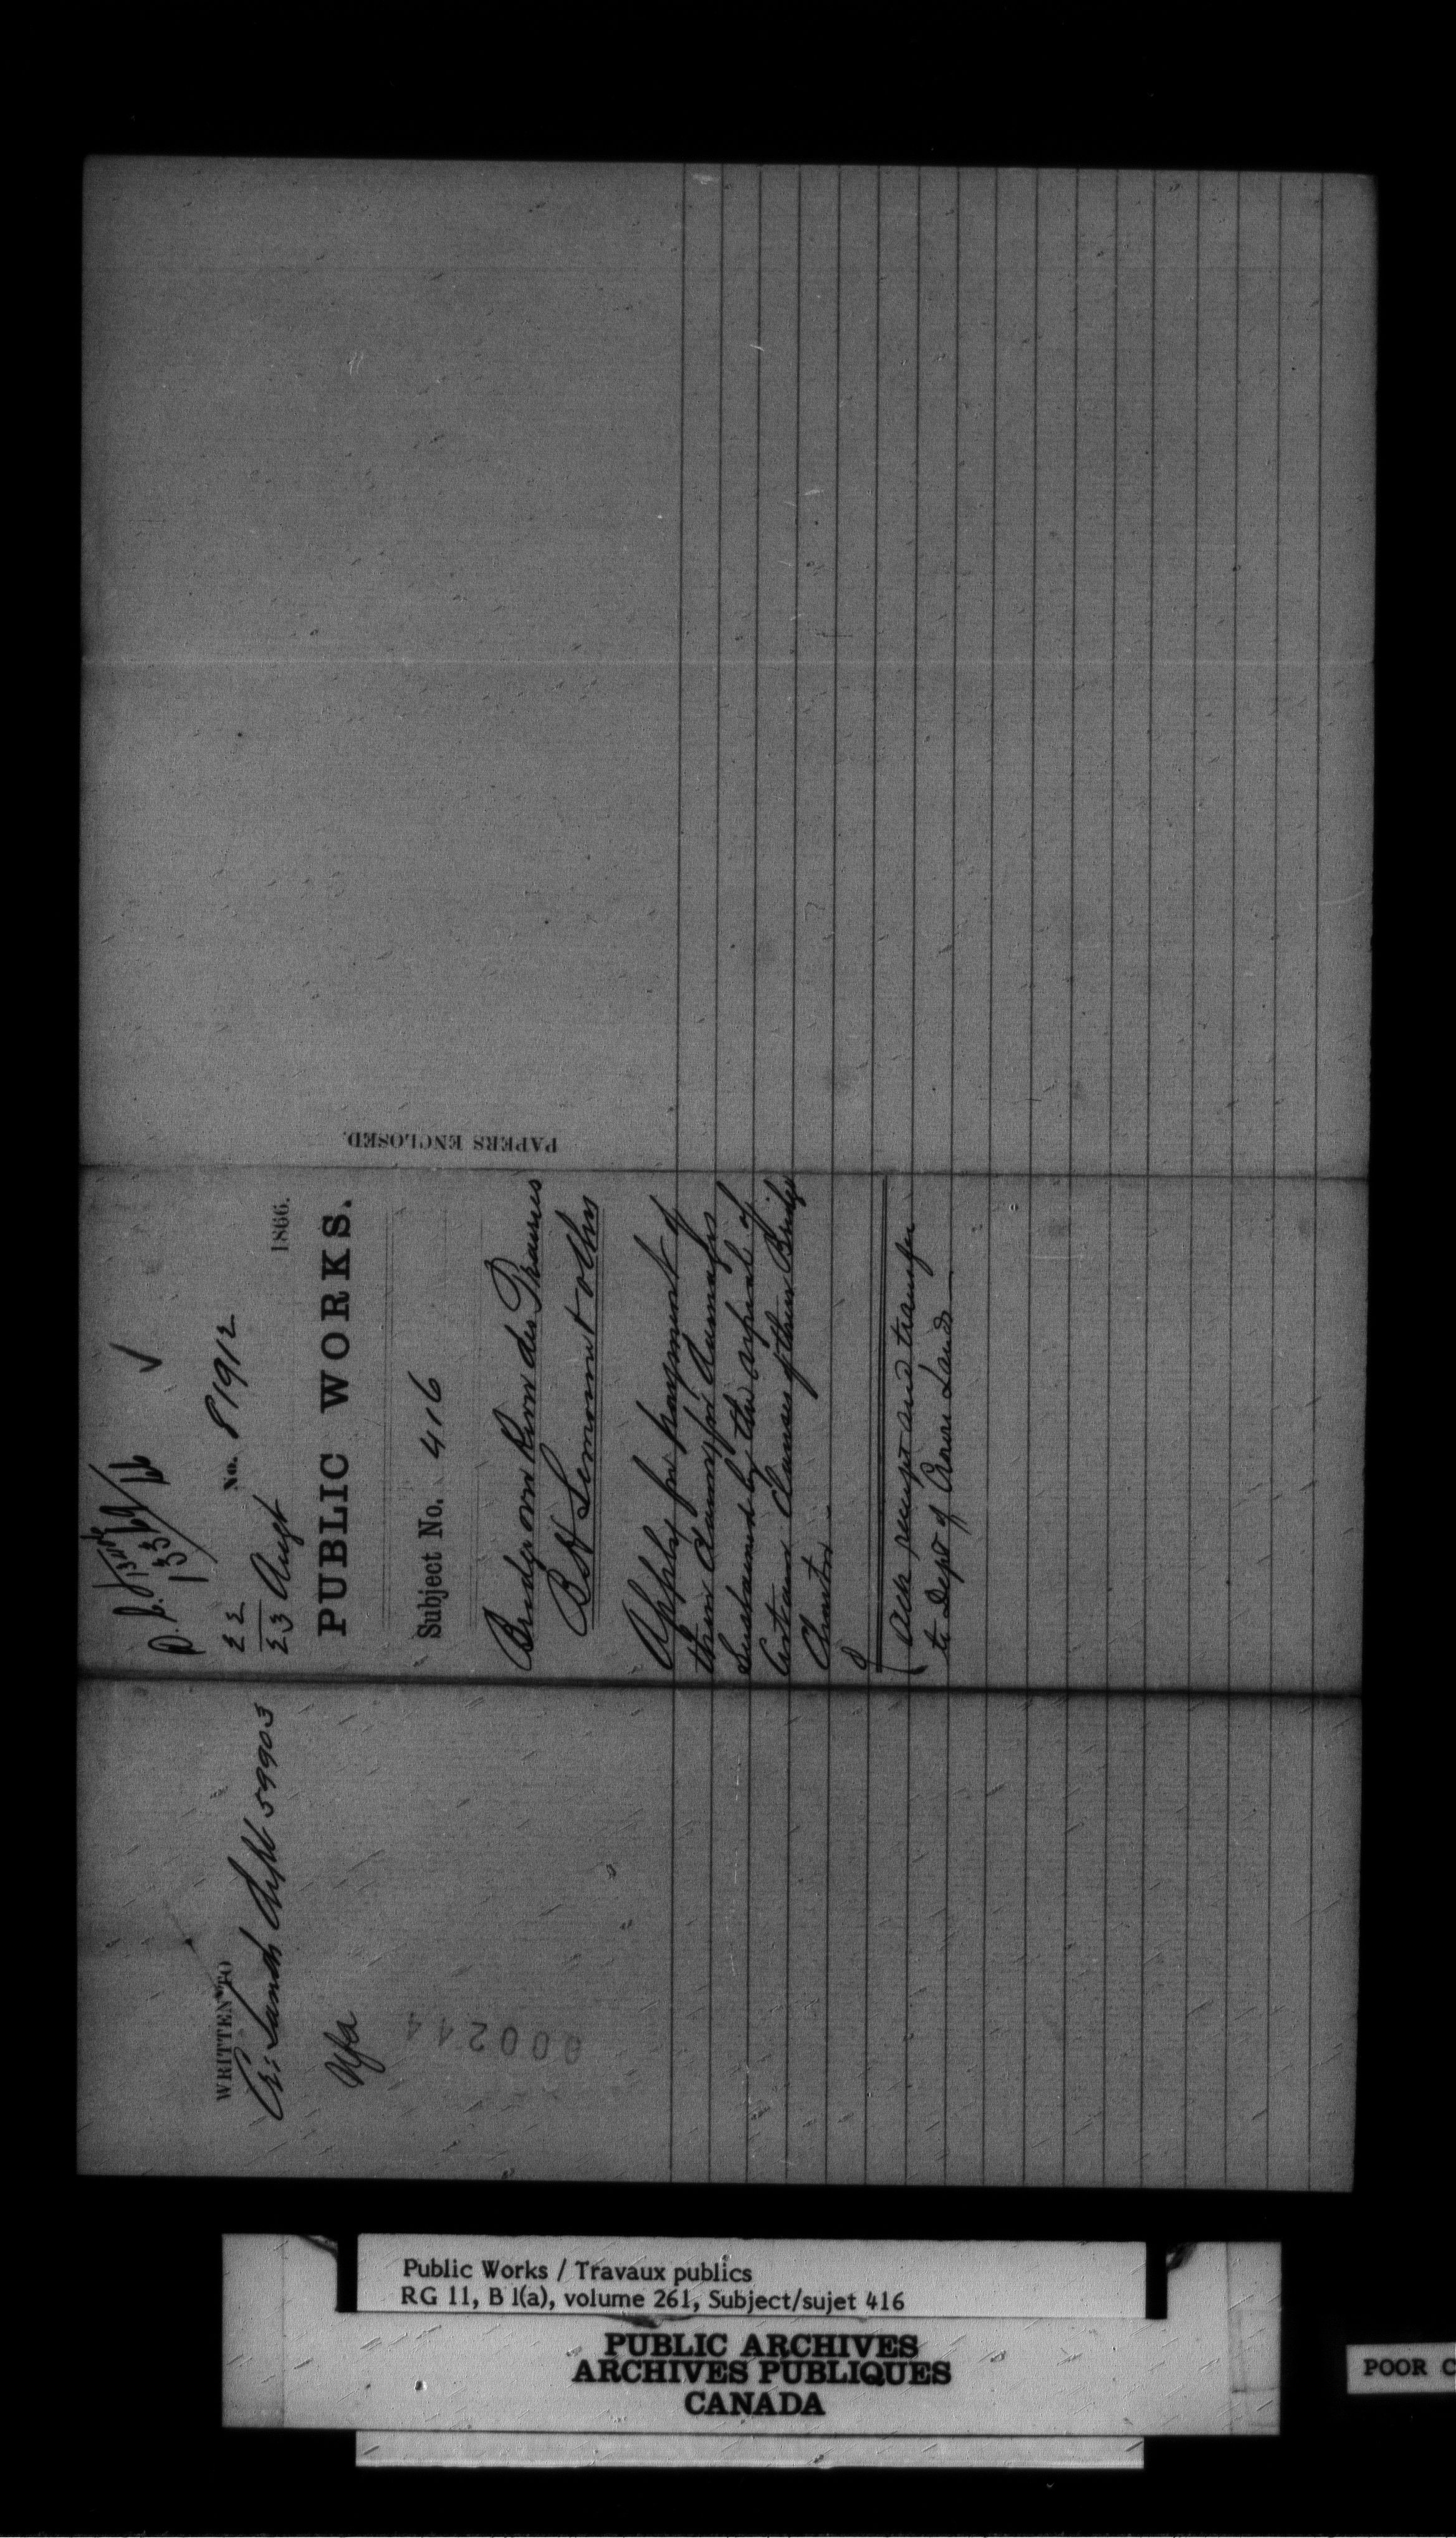 13369/66
22
23 Augt
No. 81912
1866.
PUBLIC WORKS.
Subject No. 416
Bridge over River des Prairies
B H Lemoine & others
Apply for payment of
their claim for damages
sustained by the repeal of
certain clauses of their Bridge
Charter
Ack receipt and transfer
to Dept of Crown Lands
PAPERS ENCLOSED.
WRITTEN TO
Cr: Lands Sept 59903
000244
Public Works / Travaux publics
RG 11, B 1(a), volume 261, Subject/sujet 416
PUBLIC ARCHIVES
ARCHIVES PUBLIQUES
CANADA
POOR C